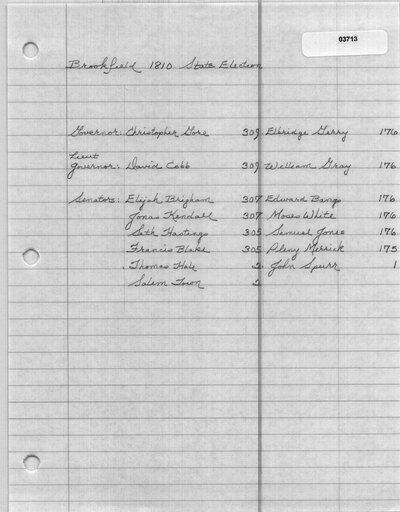 03713
Brookfield 1810 State Election
Governor: Christopher Gore 309 Elbridge Gerry 176
Lieut
Governor: David Cobb 309 William Gray 176
Senators: Elijah Brigham 307 Edward Bangs 176
Jonas Kendall 307 Moses White 176
Seth Hastings 305 Samuel Jones 176
Francis Blake 305 Pliny Merrick 175
Thomas Hale 2 John Spurr 1
Salem Town 2